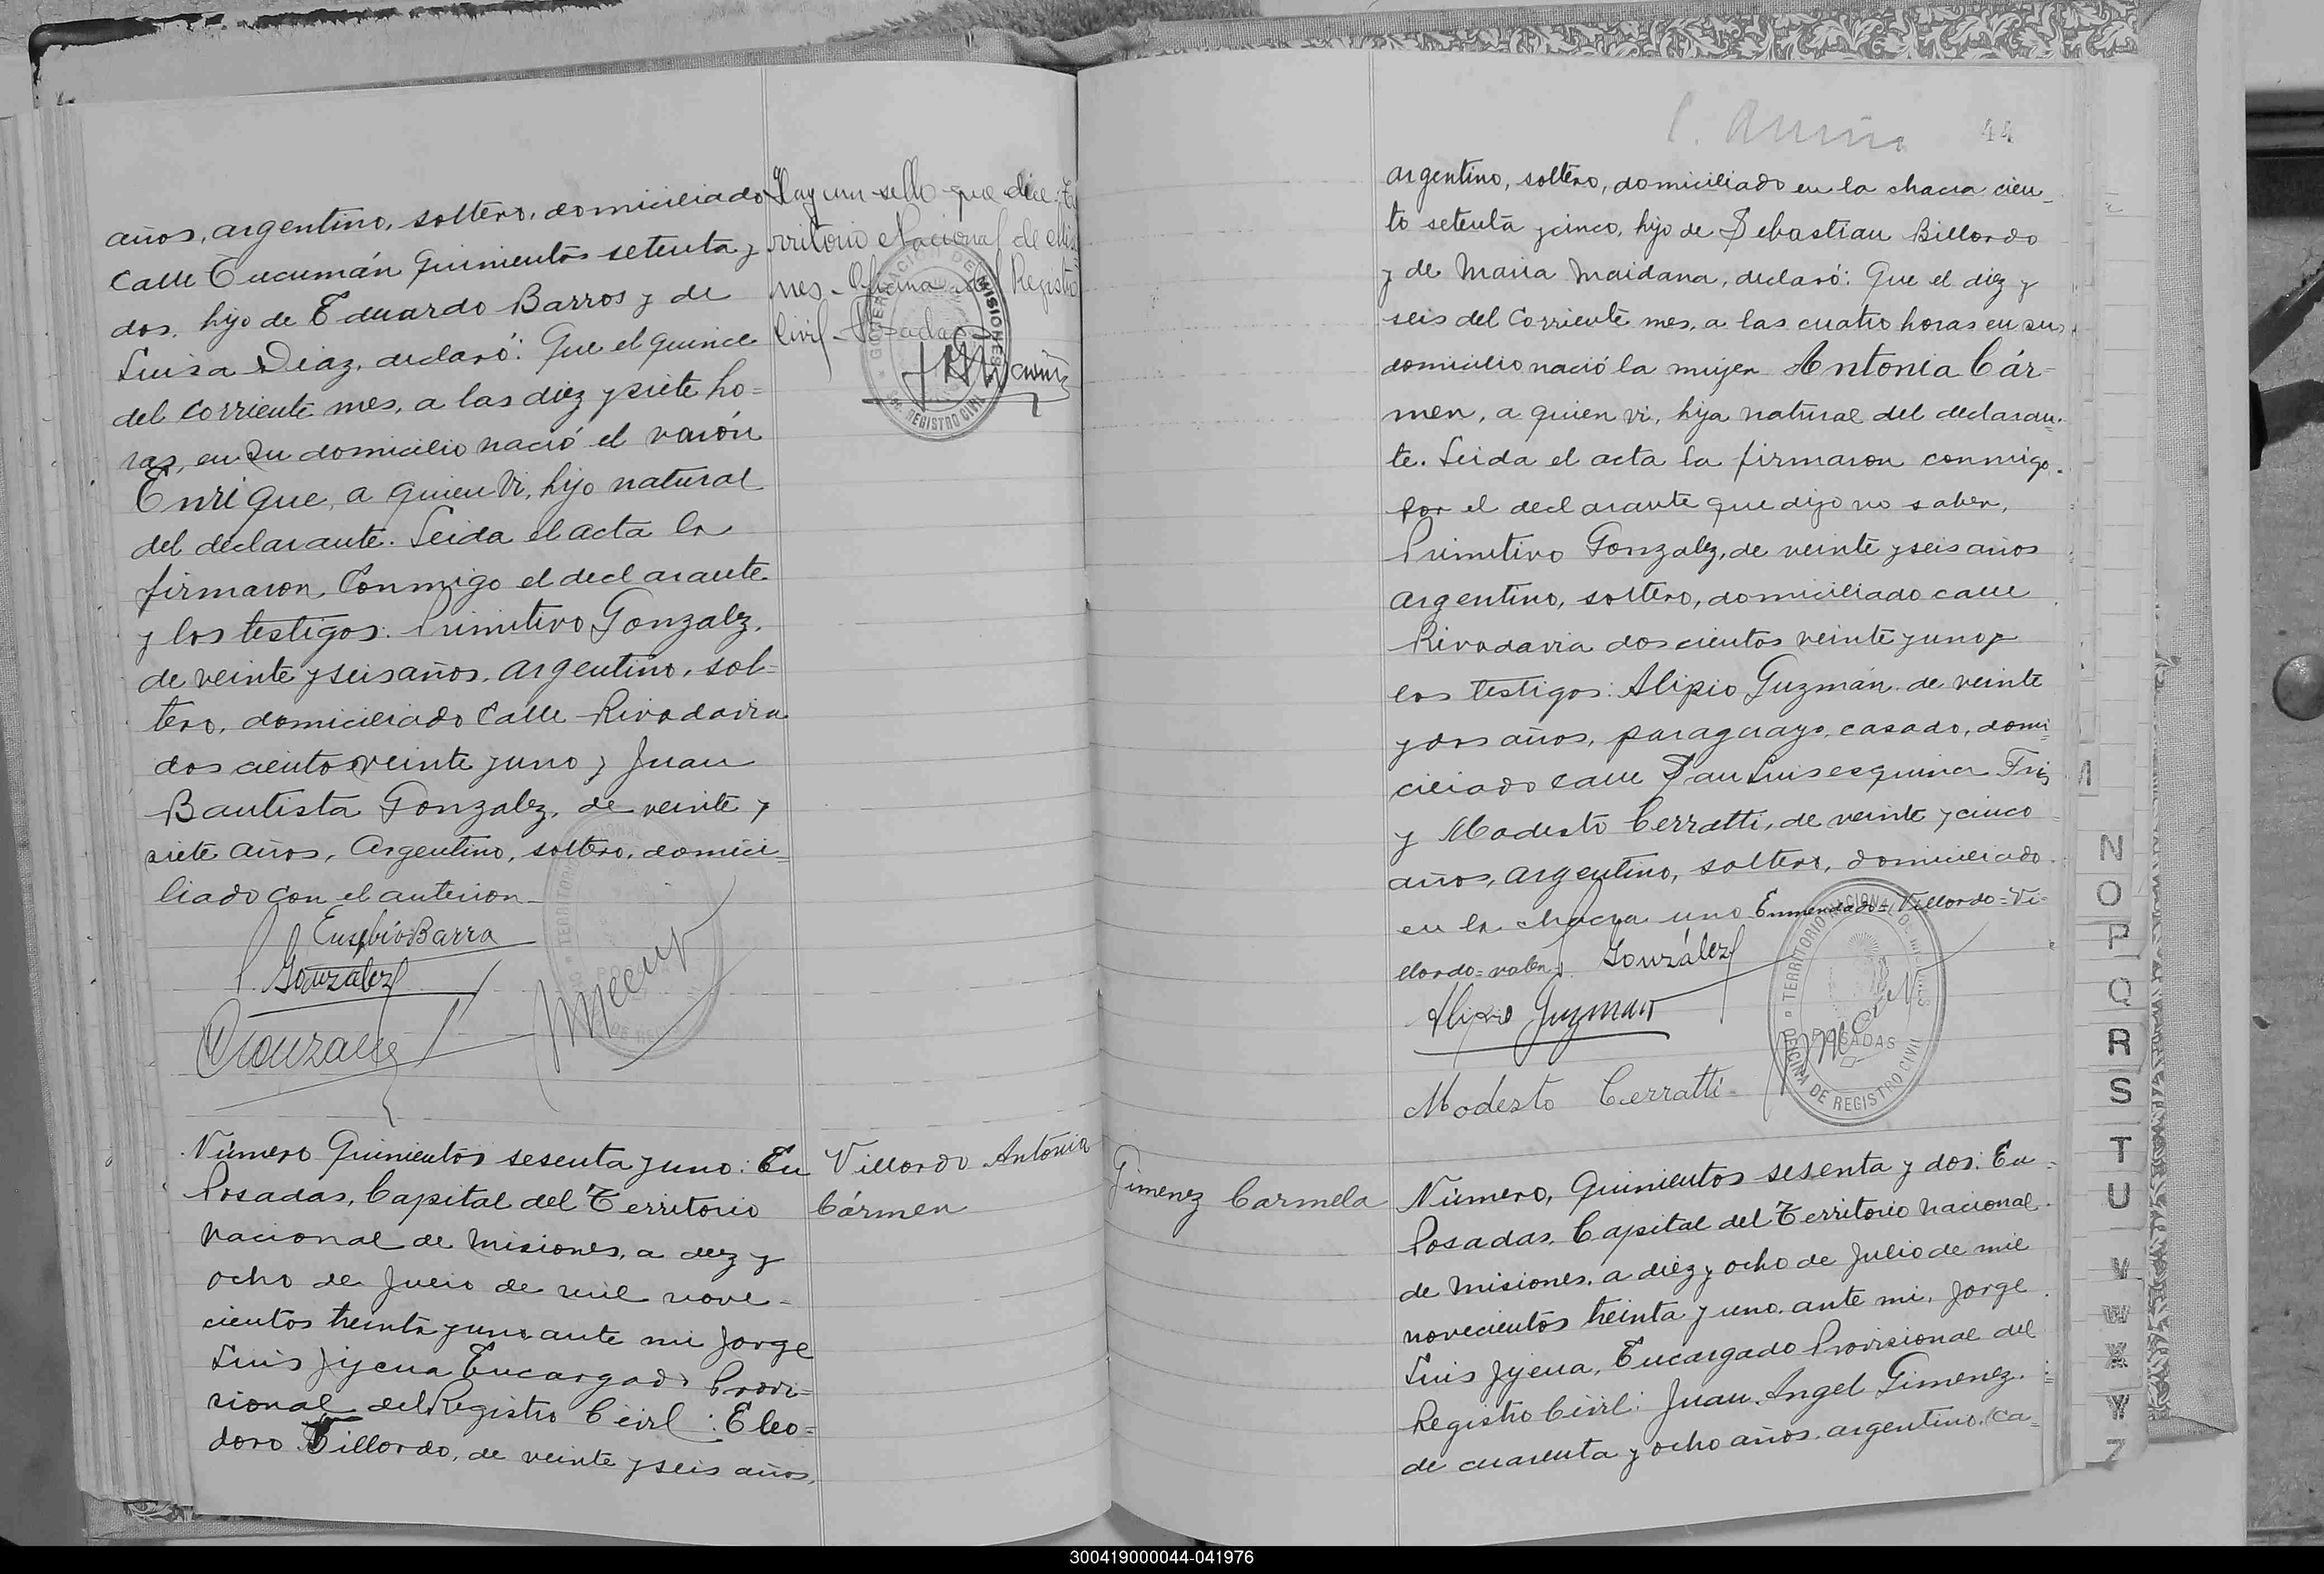 años, argentino, soltero, domiciliado
calle Tucumán quinientos setenta y
dos, hijo de Eduardo Barros y de
Luisa Diaz, declaró: Que el quince
del corriente mes, a las diez y siete ho=
ras, en su domicilio nació el varón
Enrique, a quien vi, hijo natural
del declarante. Leida el acta la
firmaron, conmigo el declarante
y los testigos: Primitivo Gonzalez,
de veinte y seis años, argentino, sol=
tero, domiciliado calle Rivadavia
dos cientos veinte y uno y Juan
Bautista Gonzalez, de veinte y
siete años, Argentino, soltero, domici=
liado con el anterior_
Eusebio Barro
P. González
Número Quinientos sesenta y uno: En
Posadas, Capital del Territorio
Nacional de Misiones, a diez y
ocho de Julio de mil nove-
cientos treinta y uno ante mi Jorge
Luis Jijena Encargado Provi=
sional del Registro Civil: Eleo=
doro Villordo, de veinte y seis años,
Hay un sello que dice: Te
rritorio Nacional de Misio
nes_ Oficina del Registro
Civil_ Posadas
GOBERNACIÓN DE MISIONES
REGISTRO CIVIL
Villordo Antonia
Cármen
44
argentino, soltero, domiciliado en la chacra cien_
to setenta y cinco, hijo de Sebastian Billordo
y de Maria Maidana, declaró: Que el diez y
seis del corriente mes, a las cuatro horas en su
domicilio nació la mujer Antonia Cár=
men, a quien vi, hija natural del declaran_
te. Leida el acta la firmaron conmigo.
Por el declarante que dijo no saber,
Primitivo Gonzalez, de veinte y seis años
argentino, soltero, domiciliado calle
Rivadavia dos cientos veinte y uno y
los testigos: Alipio Guzmán de veinte
y dos años, paraguayo, casado, domi=
ciliado calle San Luis esquina
y Modesto Cerratti, de veinte y cinco
años, argentino, soltero, domiciliado
en la chacra uno Enmendado=Villordo=Vi-
llordo=valen
P. González
Alipio Guzman
Modesto Cerratti
TERRITORIO NACIONAL DE MISIONES
POSADAS
OFICINA DE REGISTRO CIVIL
Gimenez Carmela
Número, Quinientos sesenta y dos: En
Posadas, Capital del Territorio Nacional
de Misiones, a diez y ocho de Julio de mil
novecientos treinta y uno, ante mi, Jorge
Luis Jijena, Encargado Provisional del
Registro Civil: Juan Angel Gimenez
de cuarenta y ocho años, argentino, ca=
N
O
P
Q
R
S
T
U
V
W
X
Y
Z
300419000044-041976